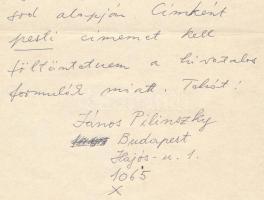 sod alapján Címként
pesti címemet kell
föltüntetnem a hivatalos
formulák miatt. Tehát:
János Pilinszky
Budapest
Hajós-u. 1.
1065
X